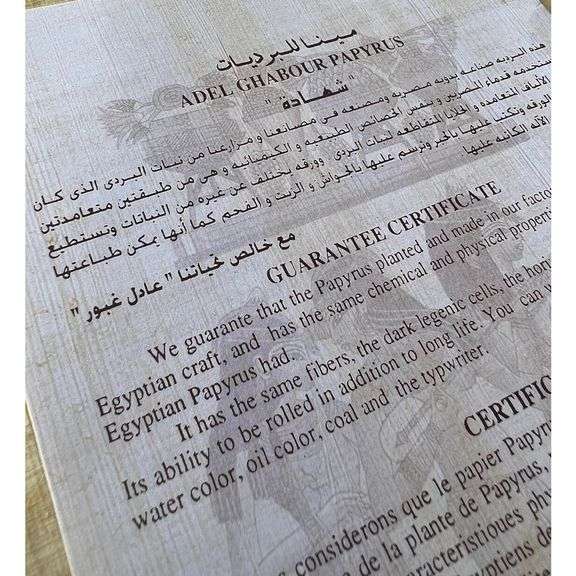 مينا للبرديات
ADEL GHABOUR PAPYRUS
" شهادة "
هذه البرديه صناعه يدويه مصريه ومصنعه فى مصانعنا و مزارعنا من نبات البردى الذى كان
يستخدمه قدماء المصريين و بنفس الخصائص الطبيعيه و الكيميائيه و هى من طبقتين متعامدتين
الألياف المتعامده و الخلايا المتقاطعه لنبات البردى وورقه يختلف عن غيره من النباتات وتستطيع
الورقه وتكتب عليها بالحبر وترسم عليها بالجواش و الزيت و الفحم كما أنها يمكن طباعتها
الآله الكاتبه عليها
مع خالص تحياتنا " عادل غبور "
GUARANTEE CERTIFICATE
We guarante that the Papyrus planted and made in our factor
Egyptian craft, and has the same chemical and physical properti
Egyptian Papyrus had.
It has the same fibers, the dark legenic cells, the hori
Its ability to be rolled in addition to long life. You can w
water color, oil color, coal and the typwriter.
CERTIFIC
considerons que le papier Papyru
de la plante de Papyrus,
caracteristioues phy
yptiens de